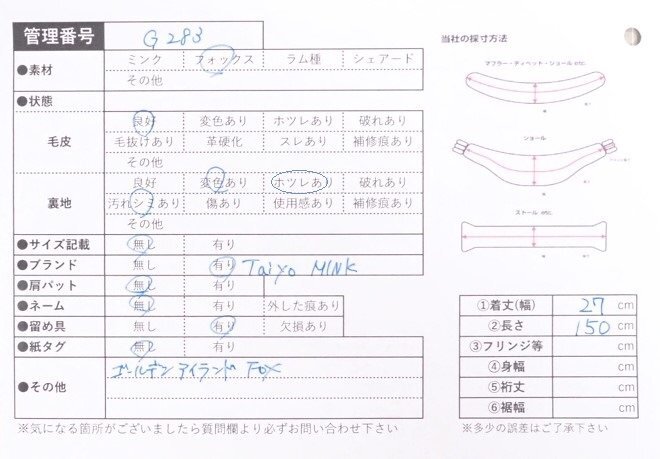 管理番号 G 283
●素材 ミンク フォックス ラム種 シェアード
その他
●状態
毛皮 良好 変色あり ホツレあり 破れあり
毛抜けあり 革硬化 スレあり 補修痕あり
その他
裏地 良好 変色あり ホツレあり 破れあり
汚れシミあり 傷あり 使用感あり 補修痕あり
その他
●サイズ記載 無し 有り
●ブランド 無し 有り Taiyo MINK
●肩パット 無し 有り
●ネーム 無し 有り 外した痕あり
●留め具 無し 有り 欠損あり
●紙タグ 無し 有り
●その他 ゴールデンアイランド FOX
※気になる箇所がございましたら質問欄より必ずお問い合わせ下さい
当社の採寸方法
マフラー・ティペット・ショール etc.
ショール
ストール etc.
①着丈(幅) 27 cm
②長さ 150 cm
③フリンジ等 cm
④身幅 cm
⑤裄丈 cm
⑥裾幅 cm
※多少の誤差はご了承下さい